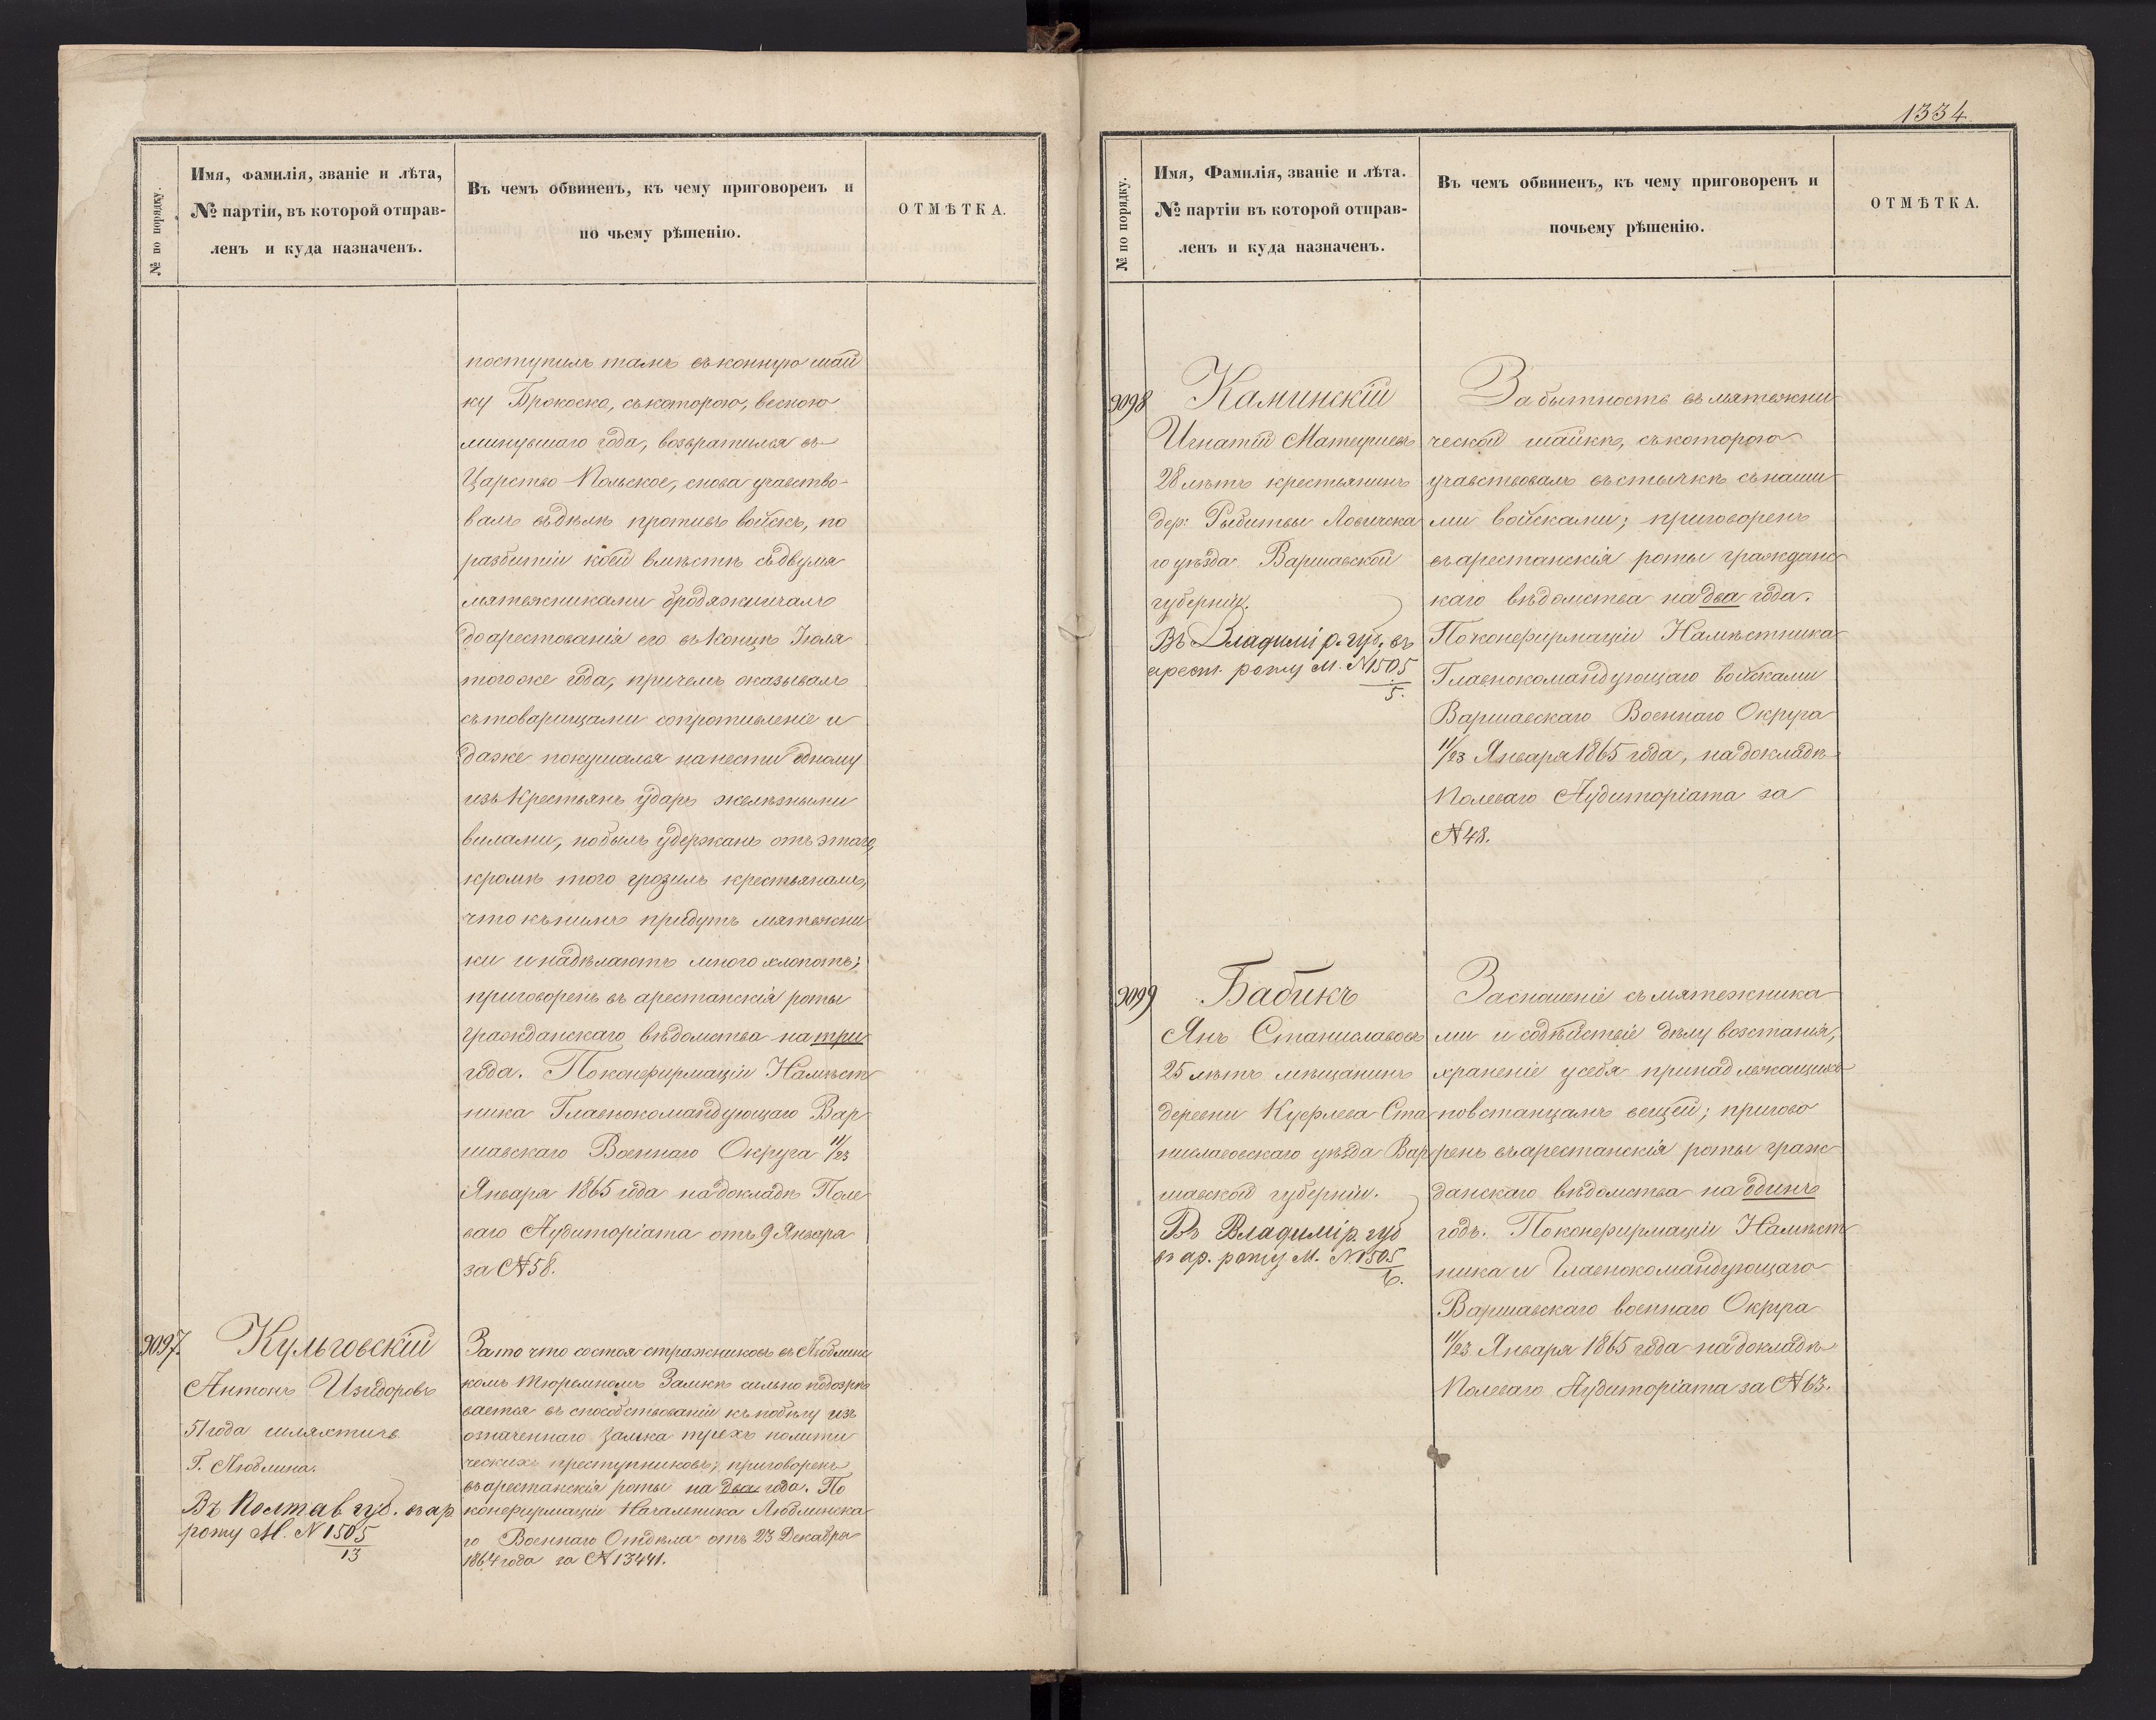 № по порядку.
Имя, Фамилія, званіе и лѣта,
№ партіи, въ которой отправ-
ленъ и куда назначенъ.
Въ чемъ обвиненъ, къ чему приговоренъ и
по чьему рѣшенію.
ОТМѢТКА.
поступилъ тамъ въ конную шай
ку Брокоско, съ которою, весною
минувшаго года, возвратился въ
Царство Польское, снова участво-
валъ въ дѣлѣ противъ войскъ, по
разбитіи коей вмѣстѣ съ двумя
мятежниками бродяжничалъ
до арестованія его въ концѣ Іюля
того же года, причемъ оказывалъ
съ товарищами сопротивленіе и
даже покушался нанести одному
изъ крестьянъ ударъ желѣзными
вилами, но былъ удержанъ отъ этаго,
кромѣ того грозилъ крестьянамъ,
что къ нимъ придутъ мятежни
ки и надѣлаютъ много хлопотъ;
приговоренъ въ арестанскія роты
гражданскаго вѣдомства на три
года. По конфирмаціи Намѣст
ника Главнокомандующаго Вар
шавскаго Военнаго Округа 11/23
Января 1865 года на докладѣ Поле
ваго Аудиторіата отъ 9 Января
за № 58.
9097.
Кульговскій
Антонъ Изидоровъ
51 года шляхтичъ
Г. Люблина.
Въ Полтав губ. въ ар
роту М. № 1505
13
За то что состоя стражникомъ въ Люблинс
комъ Тюремномъ Замкѣ сильно подозрѣ
вается въ способствованіи къ побѣгу изъ
означеннаго замка трехъ полити
ческихъ преступниковъ; приговоренъ
въ арестанскія роты на два года. По
конфирмаціи Начальника Люблинска
го Военнаго Отдѣла отъ 23 Декабря
1864 года за № 13441.
1334
№ по порядку.
Имя, Фамилія, званіе и лѣта.
№ партіи въ которой отправ-
ленъ и куда назначенъ.
Въ чемъ обвиненъ, къ чему приговоренъ и
почьему рѣшенію.
ОТМѢТКА.
9098
Каминскій
Игнатій Матеушевъ
28 лѣтъ крестьянинъ
дер: Рыбитвы Ловичска
го уѣзда Варшавской
губерніи.
Въ Владимір. губ. въ
арест. роту М. № 1505
5.
За бытность въ мятежни
ческой шайкѣ, съ которою
участвовалъ въ стычкѣ съ наши
ми войсками; приговоренъ
въ арестанскія роты гражданс
каго вѣдомства на два года.
По конфирмаціи Намѣстника
Главнокомандующаго войсками
Варшавскаго Военнаго Округа
11/23 Января 1865 года, на докладѣ
Полеваго Аудиторіата за
№ 48.
9099
Бабикъ
Янъ Станиславовъ
25 лѣтъ мѣщанинъ
деревни Куфлева Ста
ниславовскаго уѣзда Вар
шавской губерніи.
Въ Владимір. губ
въ ар. роту М. № 1505
6.
За сношеніе съ мятежника
ми и содѣйствіе дѣлу возстанія,
храненіе у себя принадлежащихъ
повстанцамъ вещей; пригово
ренъ въ арестанскія роты граж
данскаго вѣдомства на одинъ
годъ. По конфирмаціи Намѣст
ника и Главнокомандующаго
Варшавскаго военнаго Округа
11/23 Января 1865 года на докладѣ
Полеваго Аудиторіата за № 63.